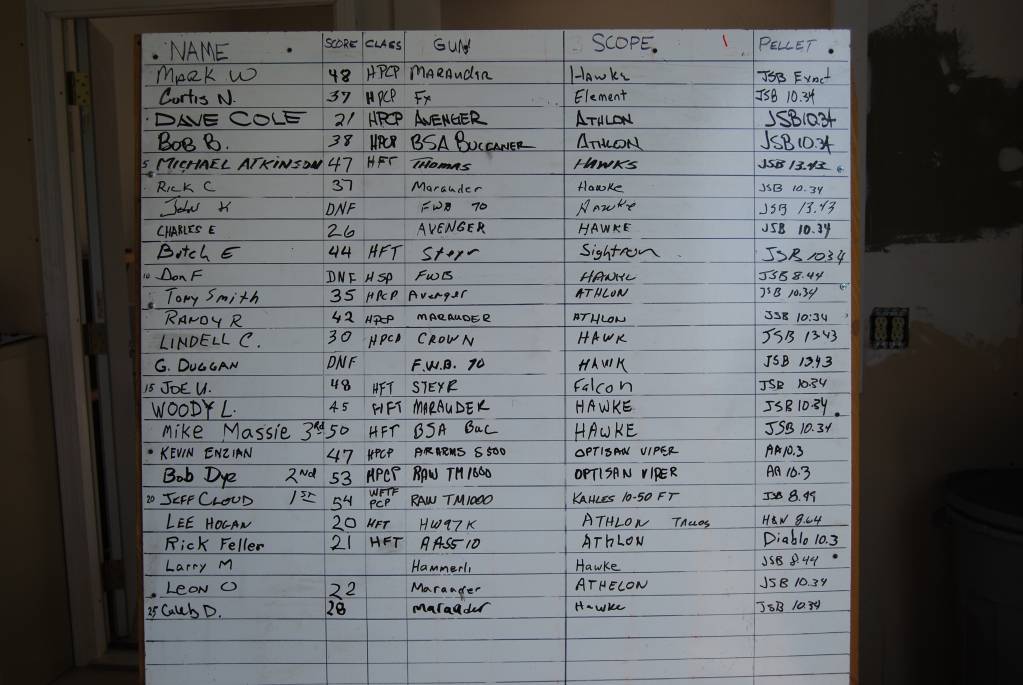 NAME SCORE CLASS GUN SCOPE PELLET
Mark W 48 HPCP MARAUDER Hawke JSB Exact
Curtis N. 37 HPCP Fx Element JSB 10.34
DAVE COLE 21 HPCP AVENGER ATHLON JSB 10.34
BOB B. 38 HPCP BSA BUCCANER ATHLON JSB 10.34
5 MICHAEL ATKINSON 47 HFT THOMAS HAWKS JSB 13.43
RICK C 37 Marauder Hawke JSB 10.34
John K DNF FWB 70 Hawke JSB 13.43
CHARLES E 26 AVENGER HAWKE JSB 10.34
Butch E 44 HFT Steyr Sightron JSB 1034
10 Don F DNF FWB HAWKE JSB 8.44
Tony Smith 35 HPCP Avenger ATHLON JSB 10.34
RANDY R 42 HPCP MARAUDER ATHLON JSB 10:34
LINDELL C. 30 HPCP CROWN HAWK JSB 1343
G. DUGGAN DNF F.W.B. 70 HAWK JSB 1343
15 JOE U. 48 HFT STEYR Falcon JSB 10.34
WOODY L. 45 HFT MARAUDER HAWKE JSB 10.34
Mike Massie 3rd 50 HFT BSA Buc HAWKE JSB 10.34
KEVIN ENZIAN 47 HPCP AR ARMS S500 OPTISAN VIPER AA10.3
Bob Dye 2nd 53 HPCP RAW TM1000 OPTISAN VIPER AA 10.3
20 JEFF CLOUD 1ST 54 WFTF PCP RAW TM1000 KAHLES 10-50 FT JSB 8.44
LEE HOGAN 20 HFT HW97K ATHLON TALOS H&N 8.64
Rick Feller 21 HFT AAS510 ATHLON Diablo 10.3
Larry M Hammerli Hawke JSB 8.44
LEON O 22 Marauder ATHELON JSB 10.34
25 Caleb D. 28 marauder Hawke JSB 10.34